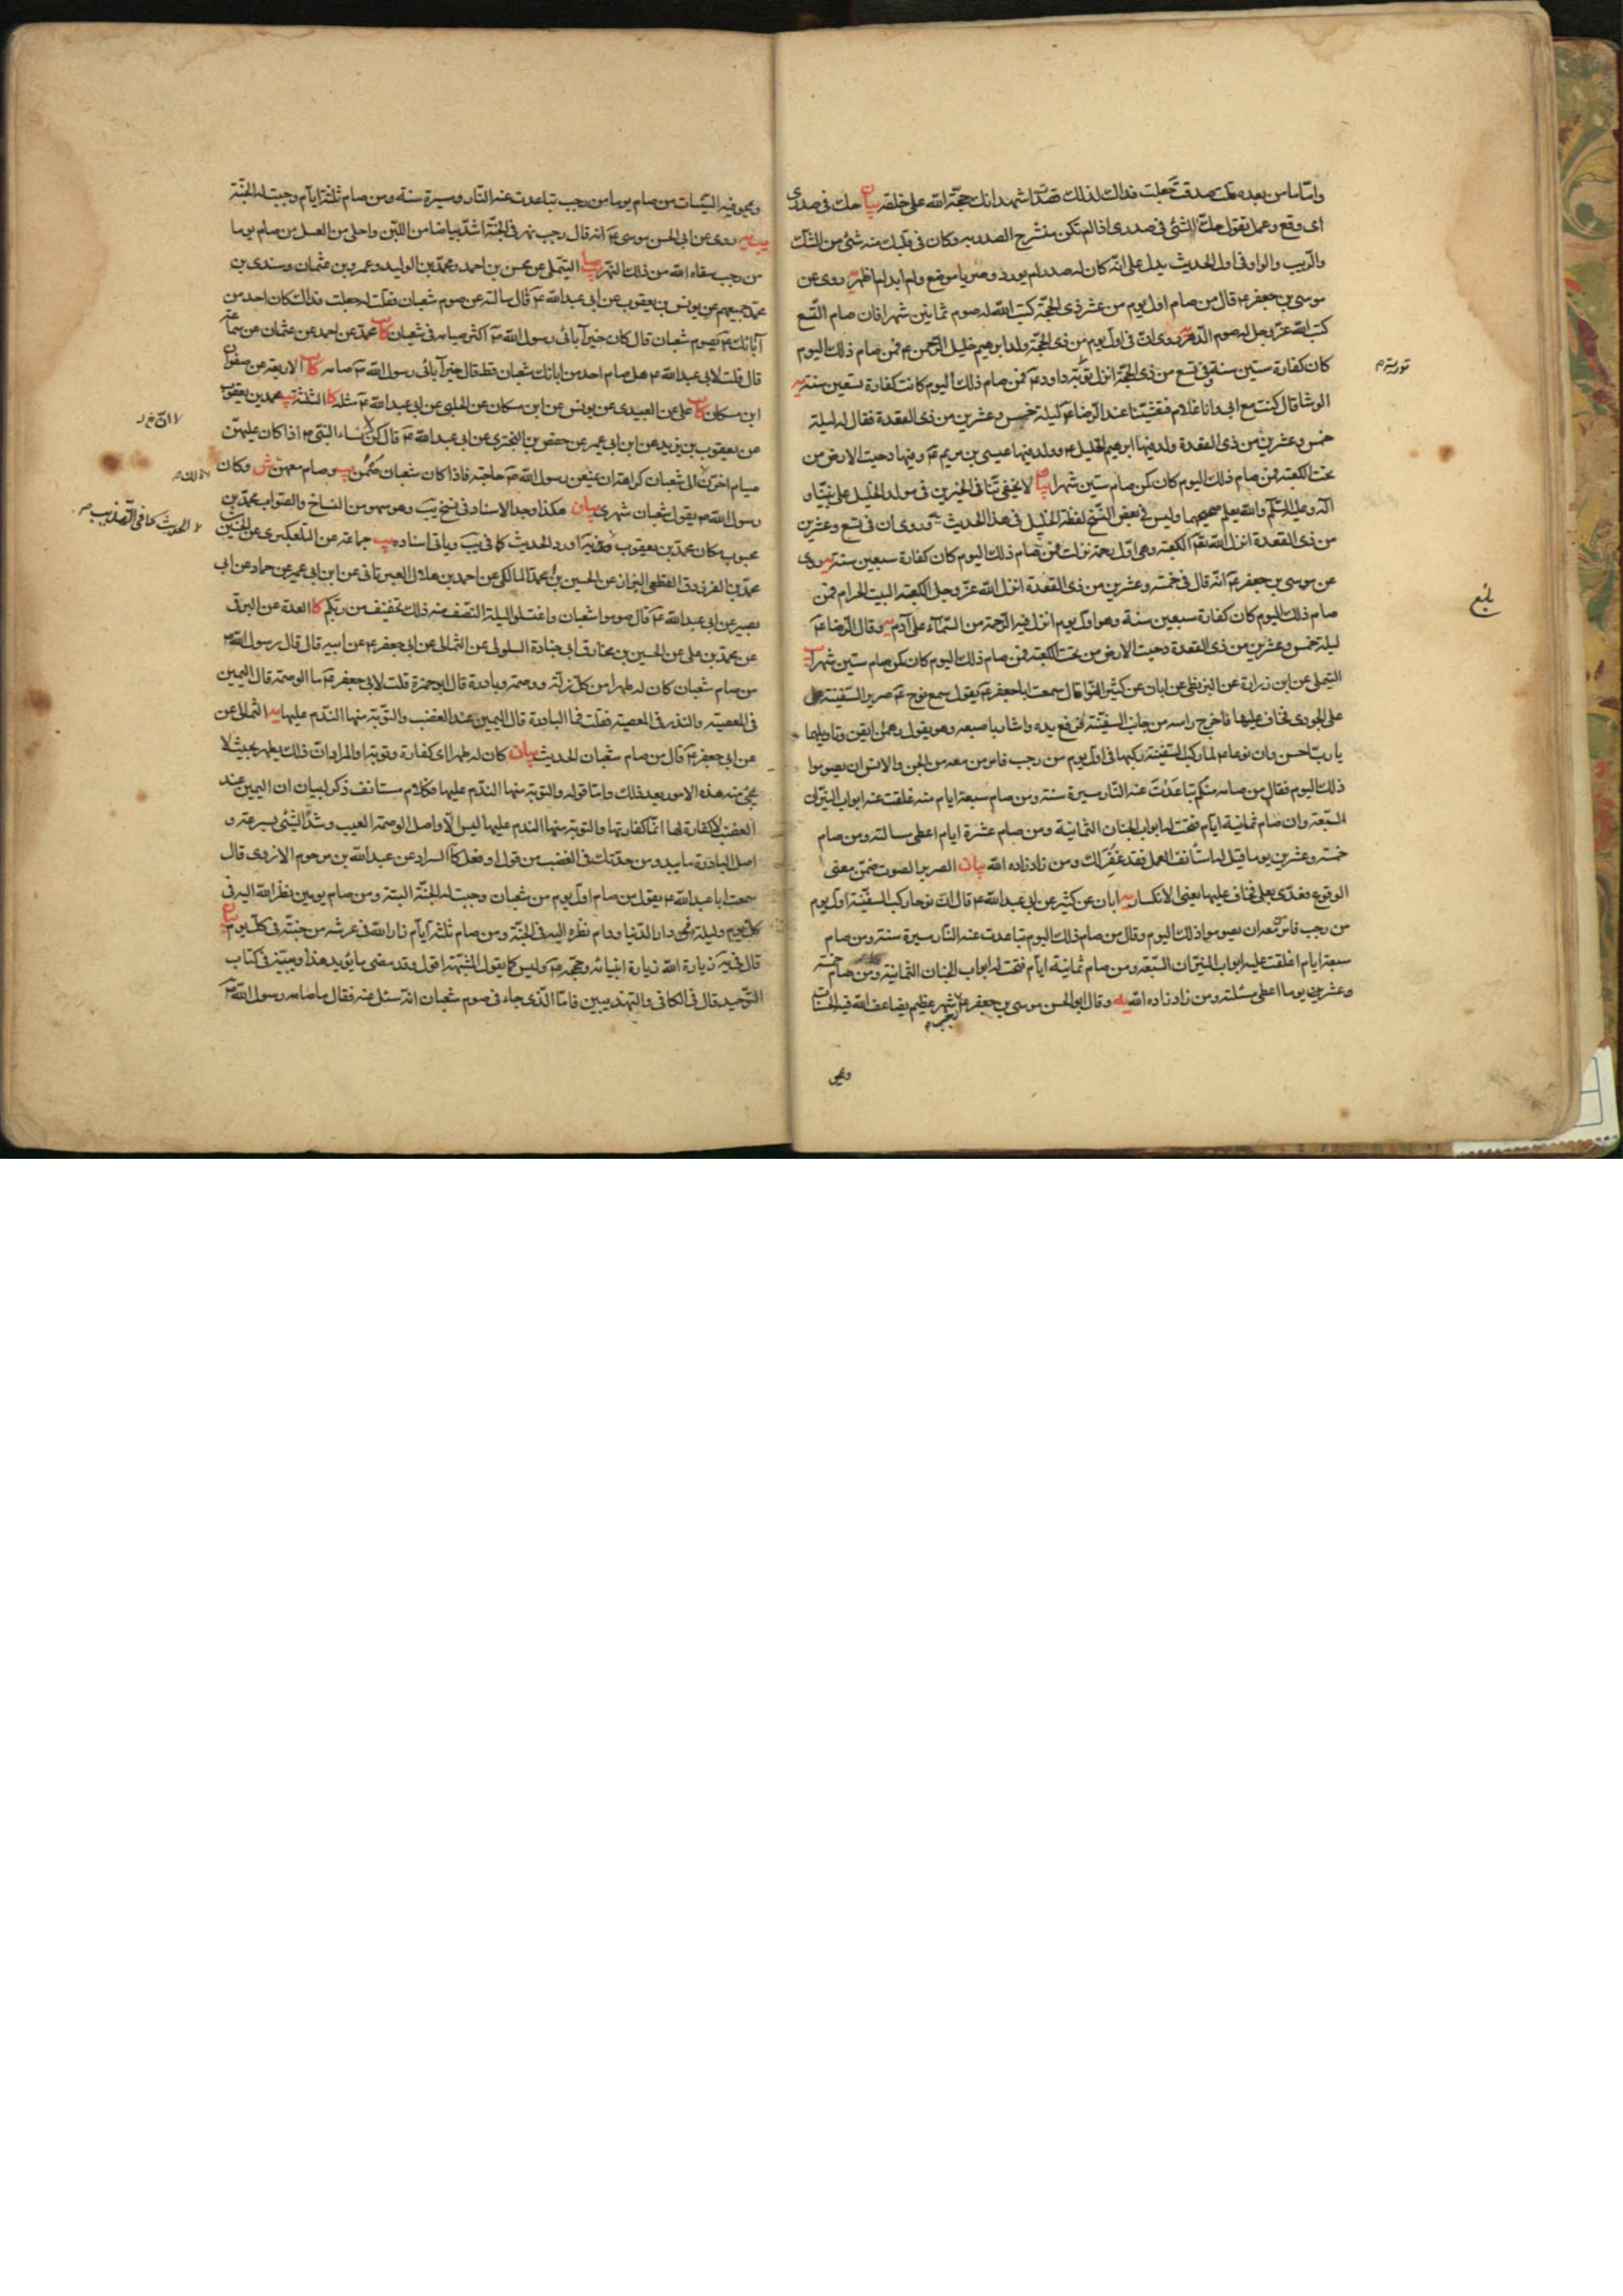 واما ما من بعده قلت صدقت جعلت فداك لذلك قصدت اشهد انك حجة الله على خلقه بيان حك فى صدرى
اى وقع وعمل تقول حك الشئ فى صدرى اذا لم تكن منشرح الصدر به وكان فى قلبك منه شئ من الشك
والريب والواو فى اول الحديث يدل على انه كان له صدر لم يورد
موسى بن جعفر ع قال من صام اول يوم من عشر ذى الحجة كتب الله له صوم ثمانين شهرا فان صام التسع
كتب الله عز وجل له صوم الدهر يه روى ان فى اول يوم من ذى الحجة ولد ابرهيم خليل الرحمن ع فمن صام ذلك اليوم
كان كفارة ستين سنة وفى تسع من ذى الحجة انزل توبة داود ع فمن صام ذلك اليوم كانت كفارة تسعين سنة يه
الوشا قال كنت مع ابى وانا غلام فتعشينا عند الرضا ع ليلة خمس وعشرين من ذى القعدة فقال له ليلة
خمس وعشرين من ذى القعدة ولد فيها ابرهيم الخليل ع وولد فيها عيسى بن مريم ع وفيها دحيت الارض من
تحت الكعبة فمن صام ذلك اليوم كان كمن صام ستين شهرا بيان لا يخفى تنافى الخبرين فى مولد الخليل على نبينا و
آله وعليه السلم والله يعلم صحيحهما وليس فى بعض النسخ لفظة الخليل فى هذا الحديث يه وروى ان فى تسع وعشرين
من ذى القعدة انزل الله تعم الكعبة وهى اول رحمة نزلت فمن صام ذلك اليوم كان كفارة سبعين سنة يه روى
عن موسى بن جعفر ع انه قال فى خمسة وعشرين من ذى القعدة انزل الله عز وجل الكعبة البيت الحرام فمن
صام ذلك اليوم كان كفارة سبعين سنة وهو اول يوم انزل فيه الرحمة من السماء على آدم يه وقال الرضا ع
ليلة خمس وعشرين من ذى القعدة دحيت الارض من تحت الكعبة فمن صام ذلك اليوم كان كمن صام ستين شهرا يب
التيملى عن ابن زرارة عن البزنطى عن ابان عن كثير النوا قال سمعت ابا جعفر ع يقول سمع نوح ع صرير السفينة
على الجودى فخاف عليها فاخرج راسه من جانب السفينة فرفع يده واشار باصبعه وهو يقول رهمان ايقن وتاويلها
يا رب احسن وان نوحا ع لما ركب السفينة ركبها فى اول يوم من رجب فامر من معه من الجن والانس ان يصوموا
ذلك اليوم فقال من صامه منكم تباعدت عنه النار مسيرة سنة ومن صام سبعة ايام منه غلقت عنه ابواب النيران
السبعة وان صام ثمانية ايام فتحت له ابواب الجنان الثمانية ومن صام عشرة ايام اعطى مسالته ومن صام
خمسة وعشرين يوما قيل له استانف العمل فقد غفر لك ومن زاد زاده الله بيان الصرير الصوت ضمن معنى
الوقوع فعدى بعلى فخاف عليها يعنى الانكسار يه ابان عن كثير عن ابى عبد الله ع قال ان نوحا ركب السفينة اول يوم
من رجب فامر من معه ان يصوموا ذلك اليوم وقال من صام ذلك اليوم تباعدت عنه النار مسيرة سنة ومن صام
سبعة ايام اغلقت عليه ابواب النيران السبعة ومن صام ثمانية ايام فتحت له ابواب الجنان الثمانية ومن صام خمسة
وعشرين يوما اعطى مسئلته ومن زاد زاده الله يه وقال ابو الحسن موسى بن جعفر ع رجب شهر عظيم يضاعف الله فيه الحسنات
بلغ
ويمحو فيه السيئات من صام يوما من رجب تباعدت عنه النار مسيرة سنة ومن صام ثلثة ايام وجبت له الجنة
يب يه روى عن ابى الحسن موسى ع انه قال رجب نهر فى الجنة اشد بياضا من اللبن واحلى من العسل من صام يوما
من رجب سقاه الله من ذلك النهر التيملى عن محسن بن احمد ومحمد بن الوليد وعمرو بن عثمان وسندى بن
محمد جميعهم عن يونس بن يعقوب عن ابى عبد الله ع قال سالته عن صوم شعبان فقلت له جعلت فداك كان احد من
آبائك ع يصوم شعبان قال كان خير آبائى رسول الله ص اكثر صيامه فى شعبان كا محمد عن احمد عن عثمان عن سماعة
قال قلت لابى عبد الله ع هل صام احد من ابائك شعبان قط قال خير آبائى رسول الله ص صامه كا الاربعة عن صفوان
ابن مسكان كا على عن العبيدى عن يونس عن ابن مسكان عن الحلبى عن ابى عبد الله ع مثله كا الثلثة يب محمد بن يعقوب
عن يعقوب بن يزيد عن ابن ابى عمير عن حفص بن البخترى عن ابى عبد الله ع قال كن نساء النبى ص اذا كان عليهن
صيام اخرن ذلك الى شعبان كراهة ان يمنعن رسول الله ص حاجته فاذا كان شعبان صمن يب وصام معهن ش وكان
رسول الله ص يقول شعبان شهرى بيان هكذا وجد الاسناد فى نسخ يب وهو سهو من النساخ والصواب محمد بن
محبوب مكان محمد بن يعقوب وفى يه اورد الحديث كما فى يب وباقى اسناده يب جماعة عن التلعكبرى عن الحسين
محمد بن الفرزدق القطعى البزاز عن الحسين بن محمد المالكى عن احمد بن هلال العبرتائى عن ابن ابى عمير عن حماد عن ابى
بصير عن ابى عبد الله ع قال صوموا شعبان واغتسلوا ليلة النصف منه ذلك تخفيف من ربكم كا العدة عن البرقى
عن محمد بن على عن الحسين بن مخارق ابى جنادة السلولى عن الثمالى عن ابى جعفر ع عن ابيه قال قال رسول الله ص
من صام شعبان كان له طهرا من كل زلة ووصمة وبادرة قال ابو حمزة قلت لابى جعفر ع ما الوصمة قال اليمين
فى المعصية والنذر فى المعصية فقلت فما البادرة قال اليمين عند الغضب والتوبة منها الندم عليها يه الثمالى عن
عن ابى جعفر ع قال من صام شعبان الحديث بيان كان له طهرا اى كفارة وتوبة والمراد ان ذلك يطهره بحيث لا
يجئ منه هذه الامور بعد ذلك واما قوله والتوبة منها الندم عليها فكلام مستانف ذكر لبيان ان اليمين عند
الغضب لا كفارة لها انما كفارتها والتوبة منها الندم عليها ليس الا واصل الوصمة العيب وشد الشئ بسرعة و
اصل البادرة ما يبدو من حدتك فى الغضب من قول او فعل كا السراد عن عبد الله بن مرحوم الازدى قال
سمعت ابا عبد الله ع يقول من صام اول يوم من شعبان وجبت له الجنة البتة ومن صام يومين نظر الله اليه فى
كل يوم وليلة فى دار الدنيا ودام نظره اليه فى الجنة ومن صام ثلثة ايام زار الله فى عرشه من جنته فى كل يوم بيان
قال فى يه زيارة الله زيارة انبيائه وحججه ع وليس كما يقول المشبهة اقول وقد مضى ما يؤيد هذا ويبينه فى كتاب
التوحيد قال فى الكافى والتهذيبين فاما الذى جاء فى صوم شعبان انه سئل عنه فقال ما صامه رسول الله ص